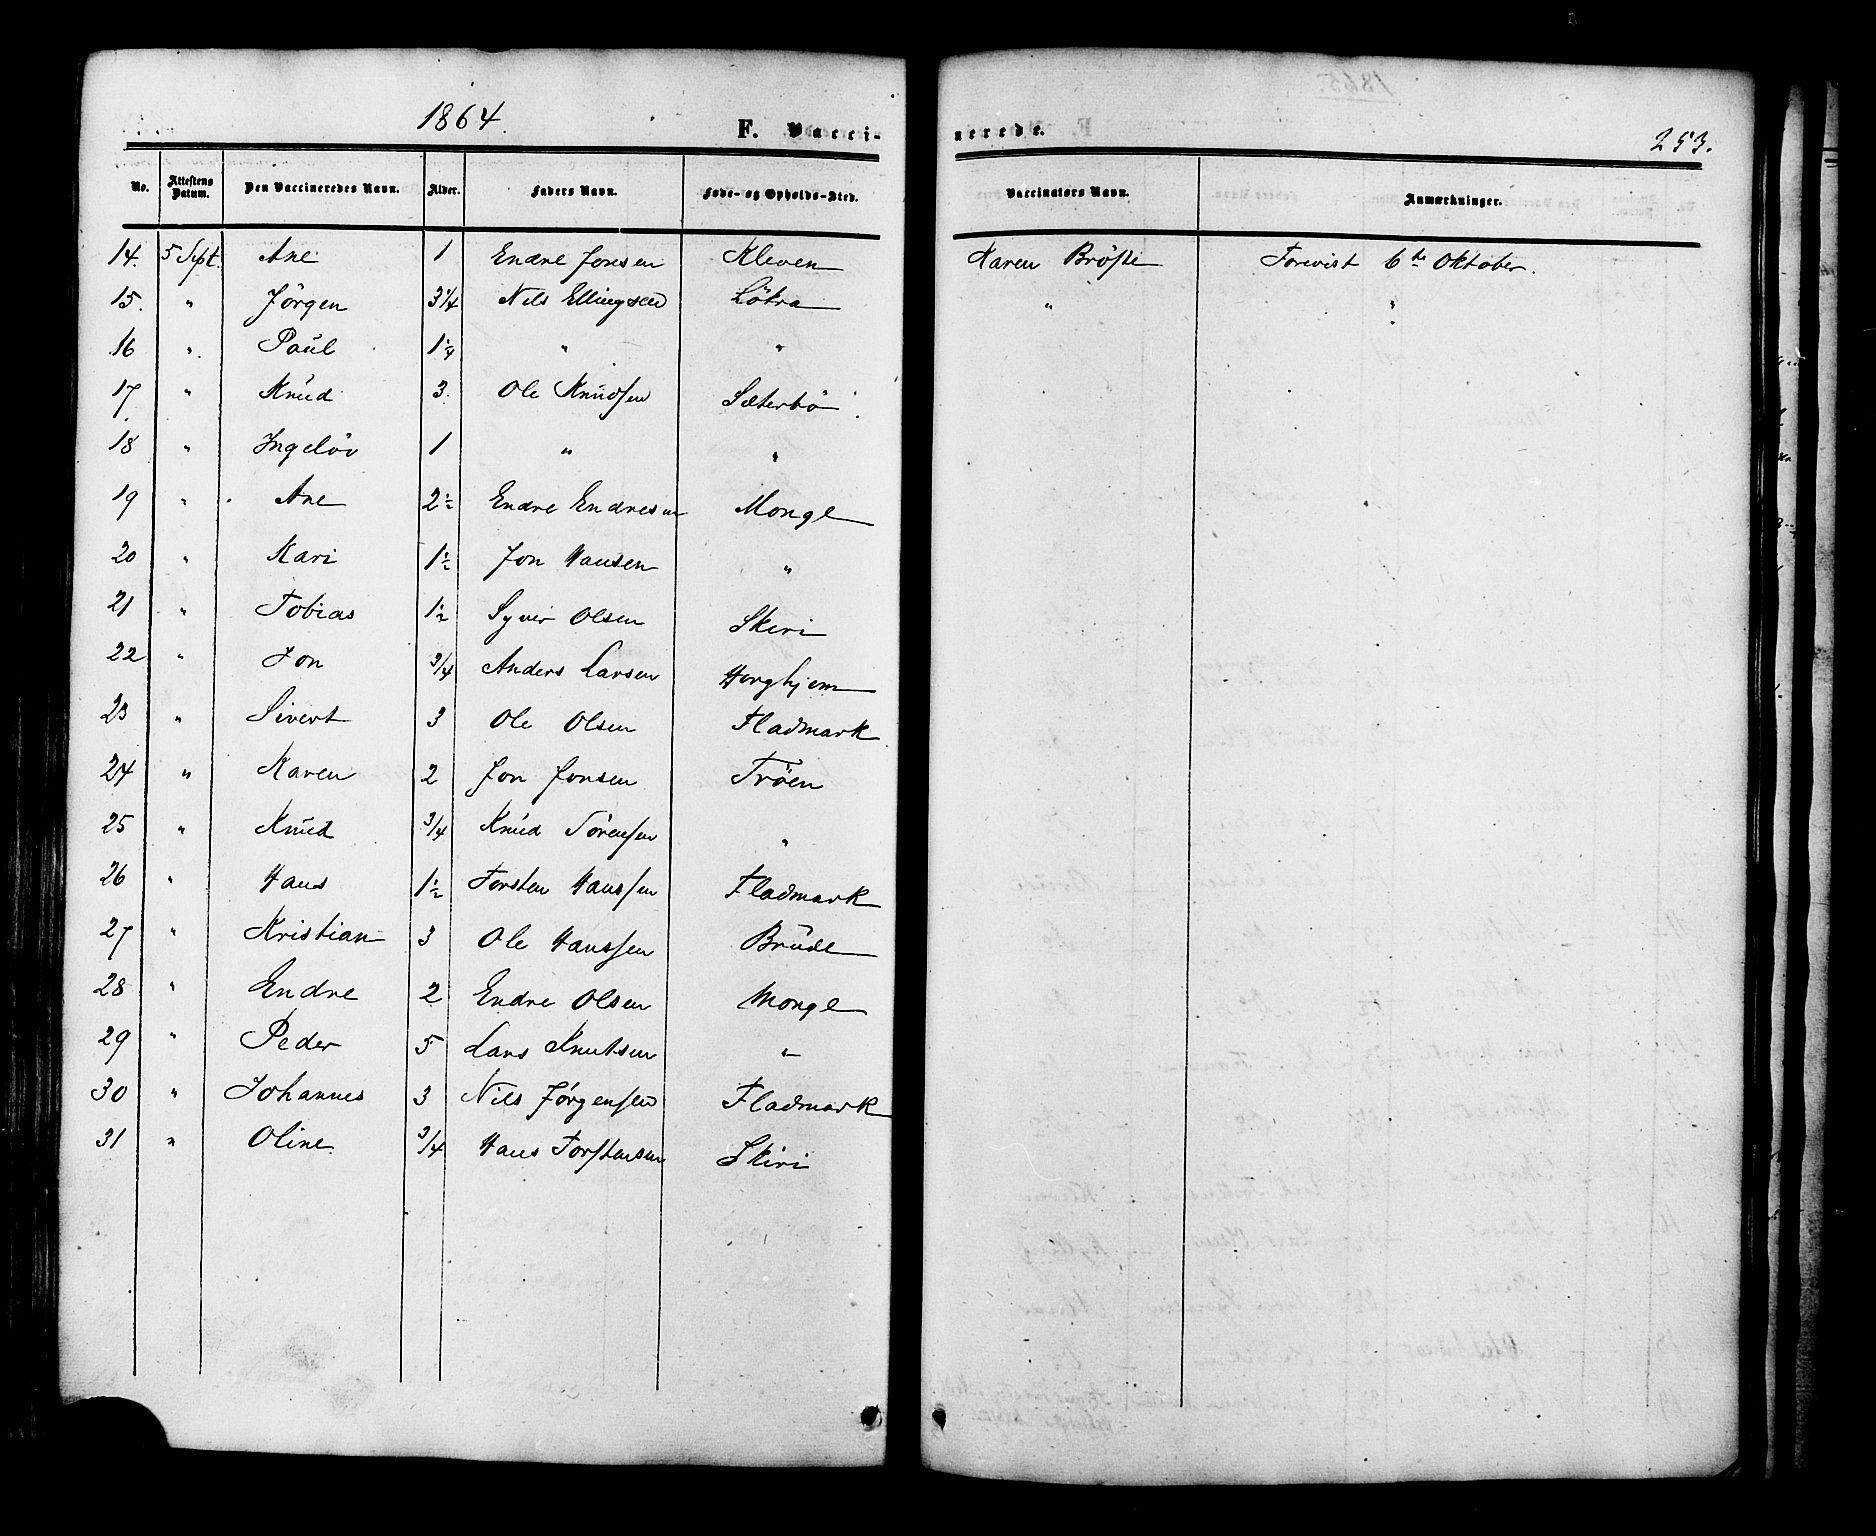 1864.
F. Vacci-
nerede.
253.
No. Attestens Datum. Den Vaccineredes Navn. Alder. Faders Navn. Føde- og Opholds-Sted. Vaccinators Navn. Anmærkninger.
14. 5 Sept. Ane 1 Endre Jonsen Kleven Karen Brøste Forevist 6te Oktober.
15. " Jörgen 3 1/4 Nils Ellingsen Lökra " "
16 " Paul 1 1/4 " "
17 " Knud 3. Ole Knudsen Sæterbö
18 " Ingeløv 1 " "
19 " Ane 2 1/2 Endre Endresen Monge
20 " Kari 1 1/2 Jon Hansen "
21 " Tobias 1 1/2 Syver Olsen Skiri
22 " Jon 3/4 Anders Larsen Horghjem
23 " Sivert 3 Ole Olsen Fladmark
24 " Karen 2 Jon Jonsen Tröen
25 " Knud 3/4 Knud Sörensen "
26 " Hans 1 1/2 Torsten Hanssen Fladmark
27 " Kristian 3 Ole Hanssen Brude
28 " Endre 2 Endre Olsen Monge
29 " Peder 5 Lars Knutsen "
30 " Johannes 3 Nils Jørgensen Fladmark
31 " Oline 3/4 Hans Torstensen Skiri